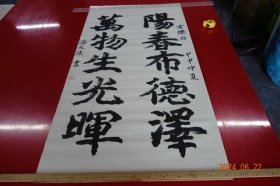 陽春布德澤
萬物生光暉
甲申仲夏
2004.06.22